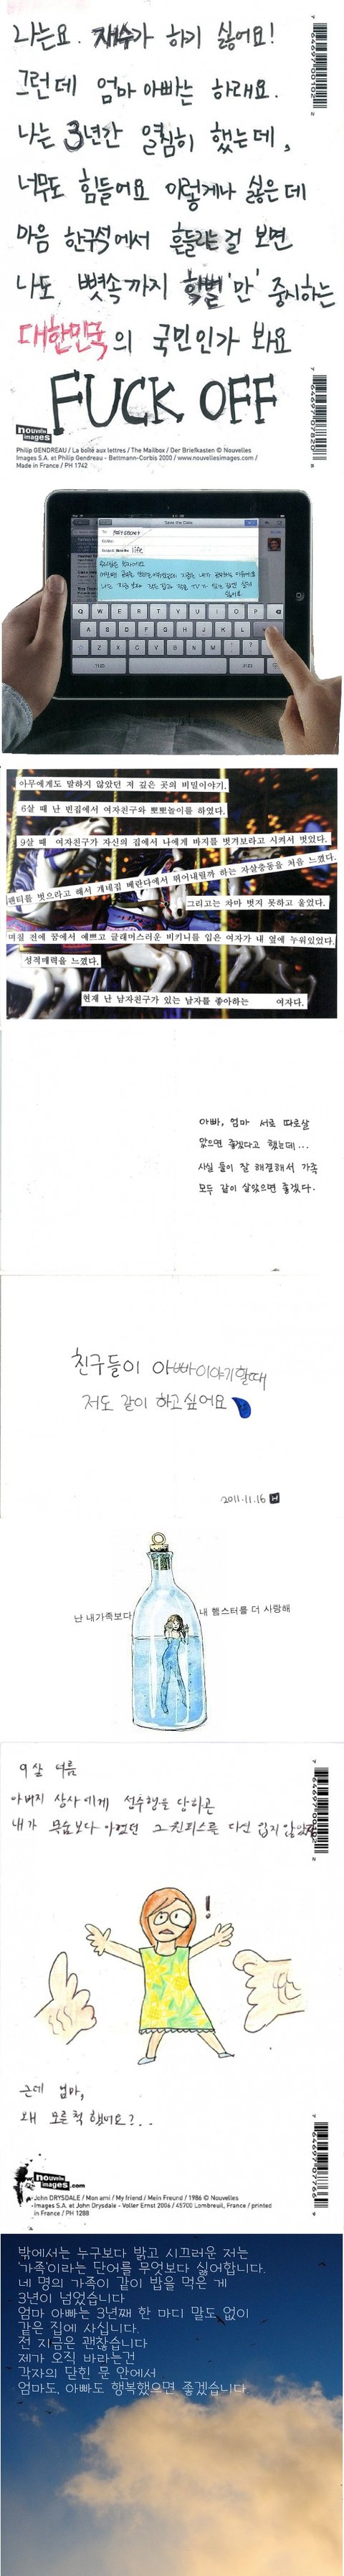 나는요. 재수가 하기 싫어요!
그런데 엄마 아빠는 하래요.
나는 3년간 열심히 했는데,
너무도 힘들어요 이렇게나 싫은데
마음 한구석에서 흔들리는걸 보면
나도 뼛속까지 학벌'만' 중시하는
대한민국의 국민인가 봐요
FUCK OFF
nouvelles images
Philip GENDREAU / La boîte aux lettres / The Mailbox / Der Briefkasten © Nouvelles
Images S.A. et Philip Gendreau - Bettmann-Corbis 2000 / www.nouvellesimages.com /
Made in France / PH 1742
Save the Date
life
Q W E R T Y U I O P
A S D F G H J K L
Z X C V B N M
아무에게도 말하지 않았던 저 깊은 곳의 비밀이야기.
6살 때 난 빈집에서 여자친구와 뽀뽀놀이를 하였다.
9살 때 여자친구가 자신의 집에서 나에게 바지를 벗겨보라고 시켜서 벗었다.
팬티를 벗으라고 해서 걔네집 베란다에서 뛰어내릴까 하는 자살충동을 처음 느꼈다.
그리고는 차마 벗지 못하고 울었다.
며칠 전에 꿈에서 예쁘고 글래머스러운 비키니를 입은 여자가 내 옆에 누워있었다.
성적매력을 느꼈다.
현재 난 남자친구가 있는 남자를 좋아하는 여자다.
아빠, 엄마 서로 따로살
았으면 좋겠다고 했는데...
사실 둘이 잘 해결해서 가족
모두 같이 살았으면 좋겠다.
친구들이 아빠이야기할때
저도 같이 하고싶어요
2011.11.16 H
난 내가족보다 내 햄스터를 더 사랑해
9살 여름
아버지 상사에게 성추행을 당하곤
내가 목숨보다 아꼈던 그 원피스를 다신 입지 않았죠
!
근데 엄마,
왜 모른척 했어요?..
nouvelles images.com
John DRYSDALE / Mon ami / My friend / Mein Freund / 1986 © Nouvelles
Images S.A. et John Drysdale - Voller Ernst 2006 / 45700 Lombreuil, France / printed
in France / PH 1288
밖에서는 누구보다 밝고 시끄러운 저는
'가족'이라는 단어를 무엇보다 싫어합니다.
네 명의 가족이 같이 밥을 먹은 게
3년이 넘었습니다
엄마 아빠는 3년째 한 마디 말도 없이
같은 집에 사십니다.
전 지금은 괜찮습니다
제가 오직 바라는건
각자의 닫힌 문 안에서
엄마도, 아빠도 행복했으면 좋겠습니다.